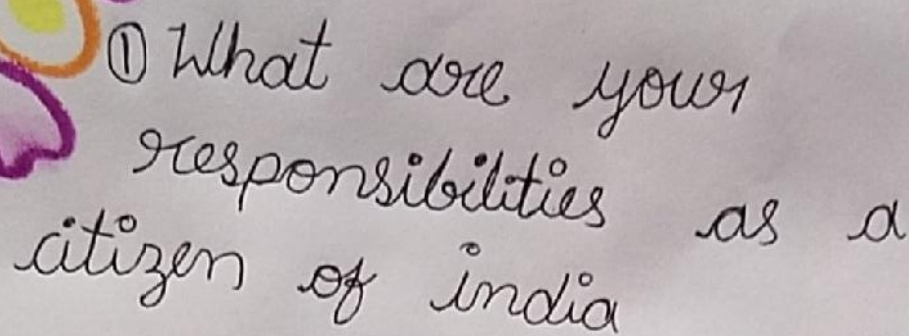 ① What are your
responsibilities as a
citizen of india